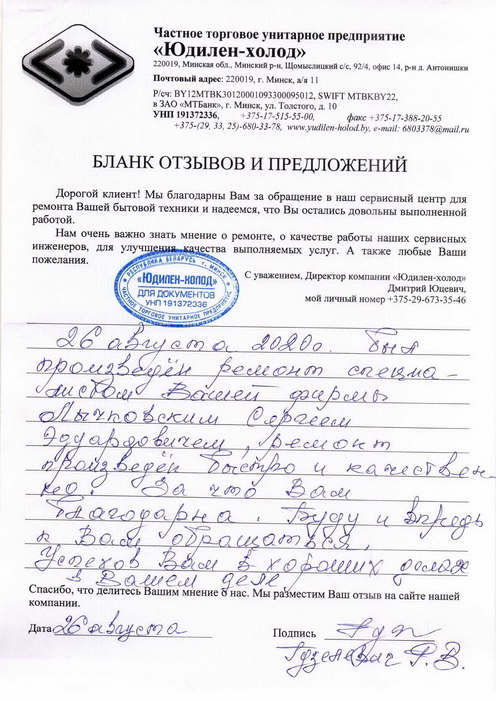 Частное торговое унитарное предприятие
«Юдилен-холод»
220019, Минская обл., Минский р-н, Щомыслицкий с/с, 92/4, офис 14, р-н д. Антонишки
Почтовый адрес: 220019, г. Минск, а/я 11
Р/сч: BY12MTBK30120001093300095012, SWIFT MTBKBY22,
в ЗАО «МТБанк», г. Минск, ул. Толстого, д. 10
УНП 191372336, +375-17-515-55-00, факс +375-17-388-20-55
+375-(29, 33, 25)-680-33-78, www.yudilen-holod.by, e-mail: 6803378@mail.ru
БЛАНК ОТЗЫВОВ И ПРЕДЛОЖЕНИЙ
Дорогой клиент! Мы благодарны Вам за обращение в наш сервисный центр для
ремонта Вашей бытовой техники и надеемся, что Вы остались довольны выполненной
работой.
Нам очень важно знать мнение о ремонте, о качестве работы наших сервисных
инженеров, для улучшения качества выполняемых услуг. А также любые Ваши
пожелания.
С уважением, Директор компании «Юдилен-холод»
Дмитрий Юцевич,
мой личный номер +375-29-673-35-46
РЕСПУБЛИКА БЕЛАРУСЬ г. МИНСК
«ЮДИЛЕН-ХОЛОД»
ДЛЯ ДОКУМЕНТОВ
УНП 191372336
ЧАСТНОЕ ТОРГОВОЕ УНИТАРНОЕ ПРЕДПРИЯТИЕ
26 августа 2020г. был
произведён ремонт специа-
листом Вашей фирмы
Лычковским Сергеем
Эдуардовичем, ремонт
произведён быстро и качествен-
но. За что Вам
благодарна. Буду и впредь
к Вам обращаться.
Успехов Вам в хороших делах
в Вашем деле
Спасибо, что делитесь Вашим мнение о нас. Мы разместим Ваш отзыв на сайте нашей
компании.
Дата 26 августа
Подпись
Г. В.